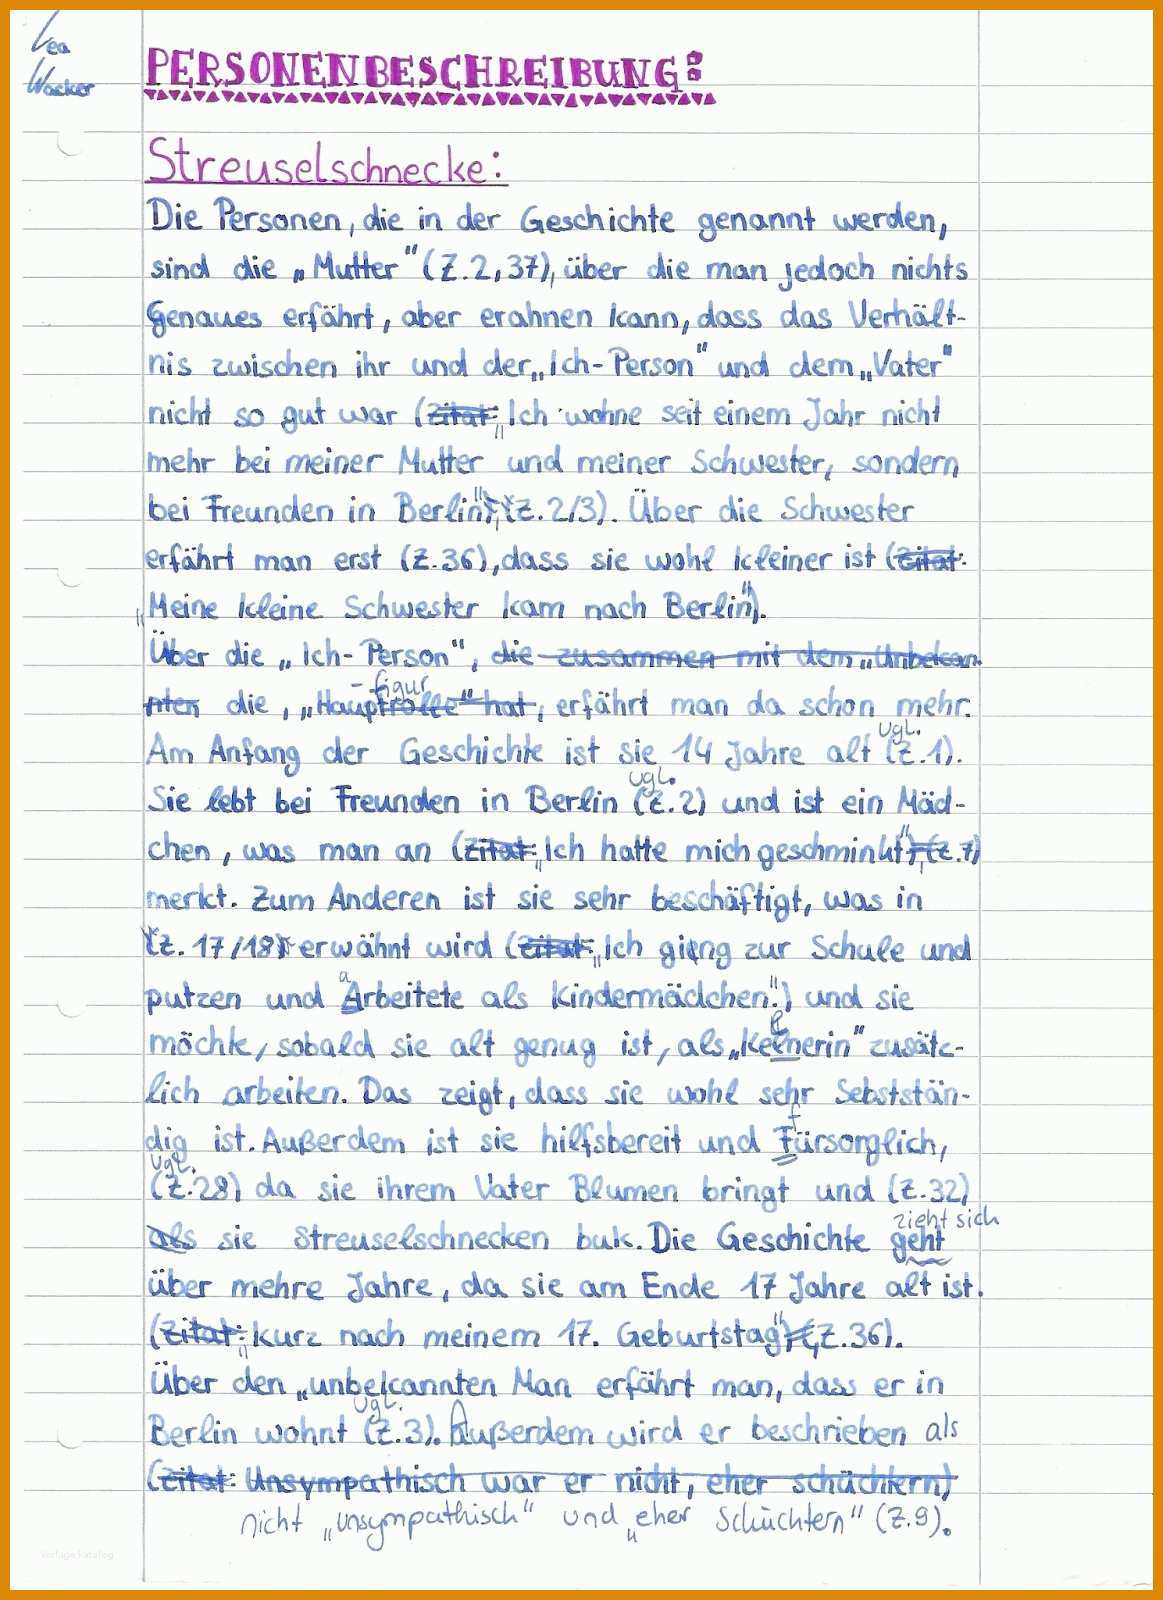 Lea
Wacker
PERSONENBESCHREIBUNG:
Streuselschnecke:
Die Personen, die in der Geschichte genannt werden,
sind die „Mutter" (Z.2,37), über die man jedoch nichts
Genaues erfährt, aber erahnen kann, dass das Verhält-
nis zwischen ihr und der „Ich-Person" und dem „Vater"
nicht so gut war (Zitat: „Ich wohne seit einem Jahr nicht
mehr bei meiner Mutter und meiner Schwester, sondern
bei Freunden in Berlin", (Z.2/3). Über die Schwester
erfährt man erst (Z.36), dass sie wohl kleiner ist (Zitat:
„Meine kleine Schwester kam nach Berlin").
Über die „Ich-Person", die zusammen mit dem „Unbekan
nten die, „Hauptrolle" hat, erfährt man da schon mehr.
-figur
Am Anfang der Geschichte ist sie 14 Jahre alt (vgl. Z.1).
Sie lebt bei Freunden in Berlin (vgl. Z.2) und ist ein Mäd-
chen, was man an (Zitat: „Ich hatte mich geschminkt", (Z.7)
merkt. Zum Anderen ist sie sehr beschäftigt, was in
(Z.17/18) erwähnt wird (Zitat: „Ich gieng zur Schule und
putzen und Arbeitete als Kindermädchen.") und sie
a
möchte, sobald sie alt genug ist, als „Kelnerin" zusätc-
l
lich arbeiten. Das zeigt, dass sie wohl sehr Sebststän-
dig ist. Außerdem ist sie hilfsbereit und Fürsorglich,
f
(vgl. Z.28) da sie ihrem Vater Blumen bringt und (Z.32)
als sie Streuselschnecken buk. Die Geschichte geht
zieht sich
über mehre Jahre, da sie am Ende 17 Jahre alt ist.
(Zitat: „kurz nach meinem 17. Geburtstag", Z.36).
Über den „unbekannten Man erfährt man, dass er in
Berlin wohnt (vgl. Z.3). Außerdem wird er beschrieben als
(Zitat: Unsympathisch war er nicht, eher schüchtern)
nicht „unsympathisch" und „eher schüchtern" (Z.9).
vorlage katalog